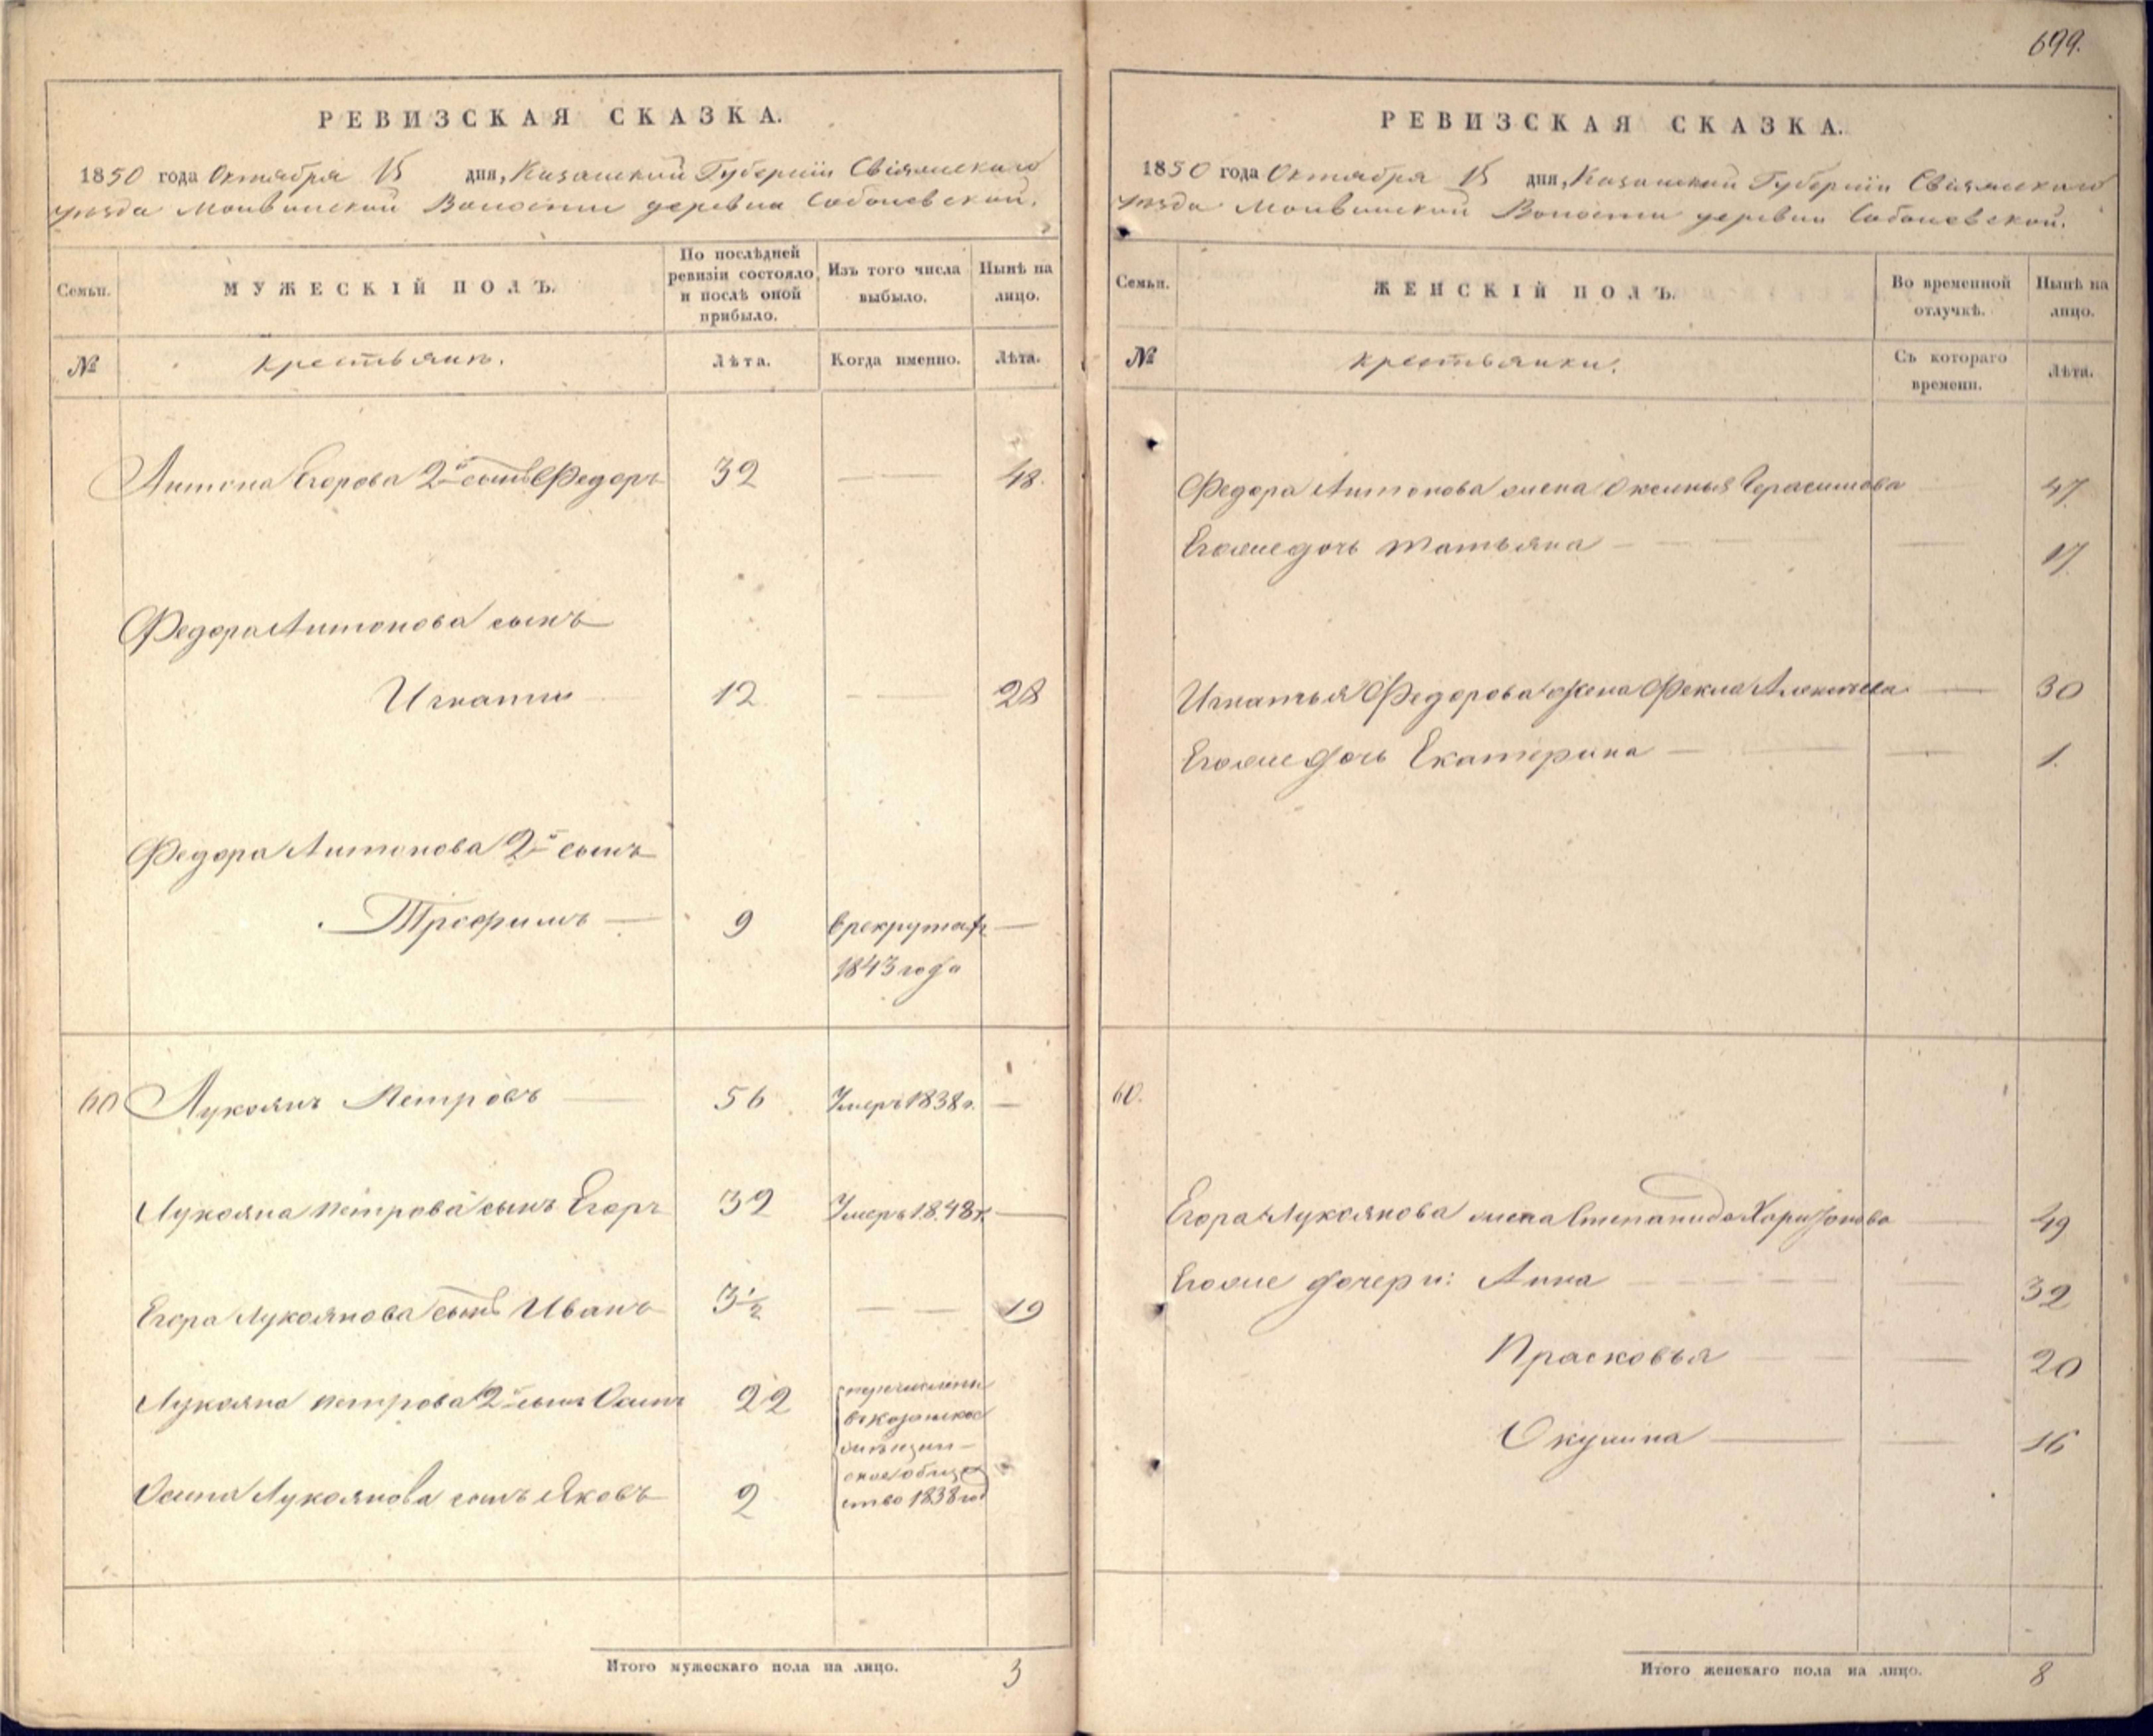 699.
РЕВИЗСКАЯ СКАЗКА.
1850 года Октября 15 дня, Казанской Губернiи Свiяжскаго
уезда Молвинской Волости деревни Соболевской.
Семьи. МУЖЕСКІЙ ПОЛЪ. По послѣдней ревизіи состояло и послѣ оной прибыло. Изъ того числа выбыло. Нынѣ на лицо.
№ крестьянъ. Лѣта. Когда именно. Лѣта.
Антона Егорова 2й сынъ Федоръ 32 — 48.
Федора Антонова сынъ
Игнатiй 12 — 28
Федора Антонова 2й сынъ
Трофимъ — 9 в рекрутах —
1843 года
60 Лукоянъ Петровъ — 56 Умеръ 1838 г. —
Лукояна Петрова сынъ Егоръ 32 Умеръ 1848 г. —
Егора Лукоянова сынъ Иванъ 3½ — — 19
Лукояна Петрова 2й сынъ Осипъ 22 перечислены
въ казанское
мещан-
ское общес
Осипа Лукоянова сынъ Яковъ 2 ство 1838 год
Итого мужескаго пола на лицо. 3
РЕВИЗСКАЯ СКАЗКА.
1850 года Октября 15 дня, Казанской Губернiи Свiяжскаго
уезда Молвинской Волости деревни Соболевской.
Семьи. ЖЕНСКІЙ ПОЛЪ. Во временной отлучкѣ. Нынѣ на лицо.
№ крестьянки. Съ котораго времени. Лѣта.
Федора Антонова жена Оксинья Герасимова — 47.
Егоже дочь Татьяна — — 17.
Игнатья Федорова жена Фекла — 30
Егоже дочь Екатерина — — 1.
60.
Егора Лукоянова жена Степанида Харитонова — 49
Егоже дочери: Анна — — 32
Прасковья — — 20
Окулина — — 16
Итого женскаго пола на лицо. 8